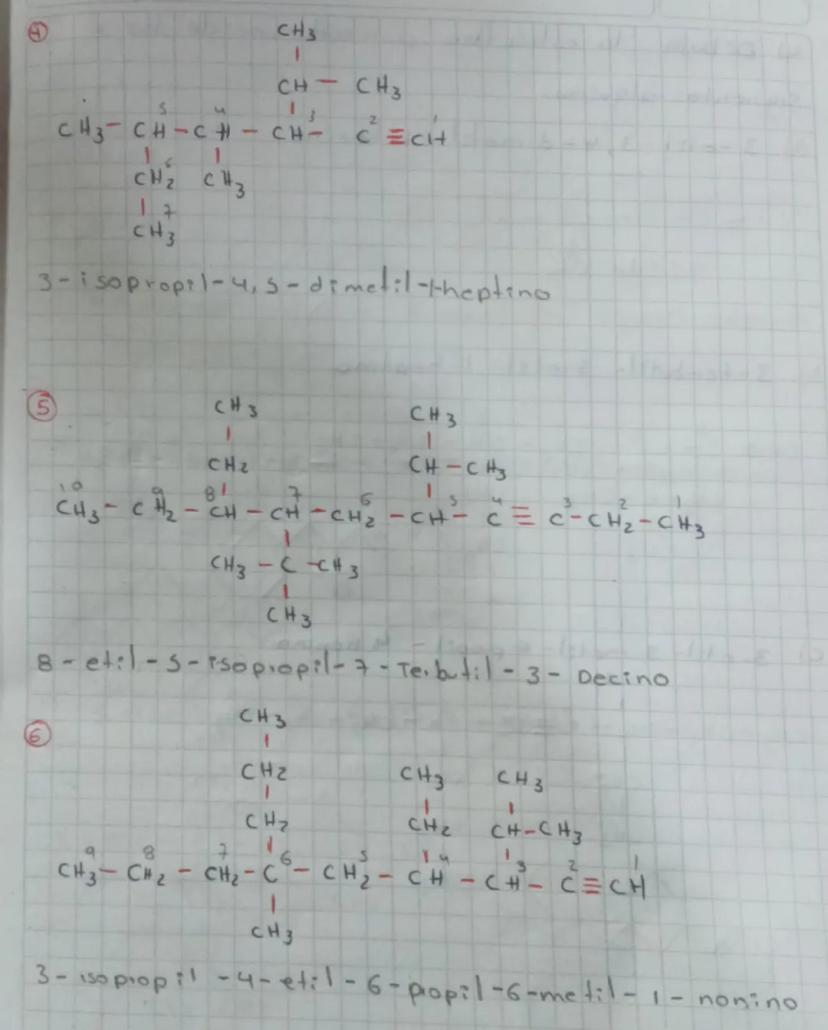 4
CH3
CH - CH3
CH3 - CH 5 - CH 4 - CH 3 - C 2 ≡ CH 1
CH2 6 CH3
7
CH3
3-isopropil-4,5-dimetil-1-heptino
5
CH3 CH3
CH2 CH-CH3
10 CH3 - 9 CH2 - 8 CH - 7 CH - CH2 6 - CH 5 - C 4 ≡ C 3 - CH2 2 - CH3 1
CH3 - C - CH3
CH3
8-etil-5-isopropil-7-Terbutil-3-Decino
6
CH3
CH2 CH3 CH3
CH2 CH2 CH-CH3
9 CH3 - 8 CH2 - 7 CH2 - C 6 - CH2 5 - CH 4 - CH 3 - C 2 ≡ CH 1
CH3
3-isopropil-4-etil-6-propil-6-metil-1-nonino